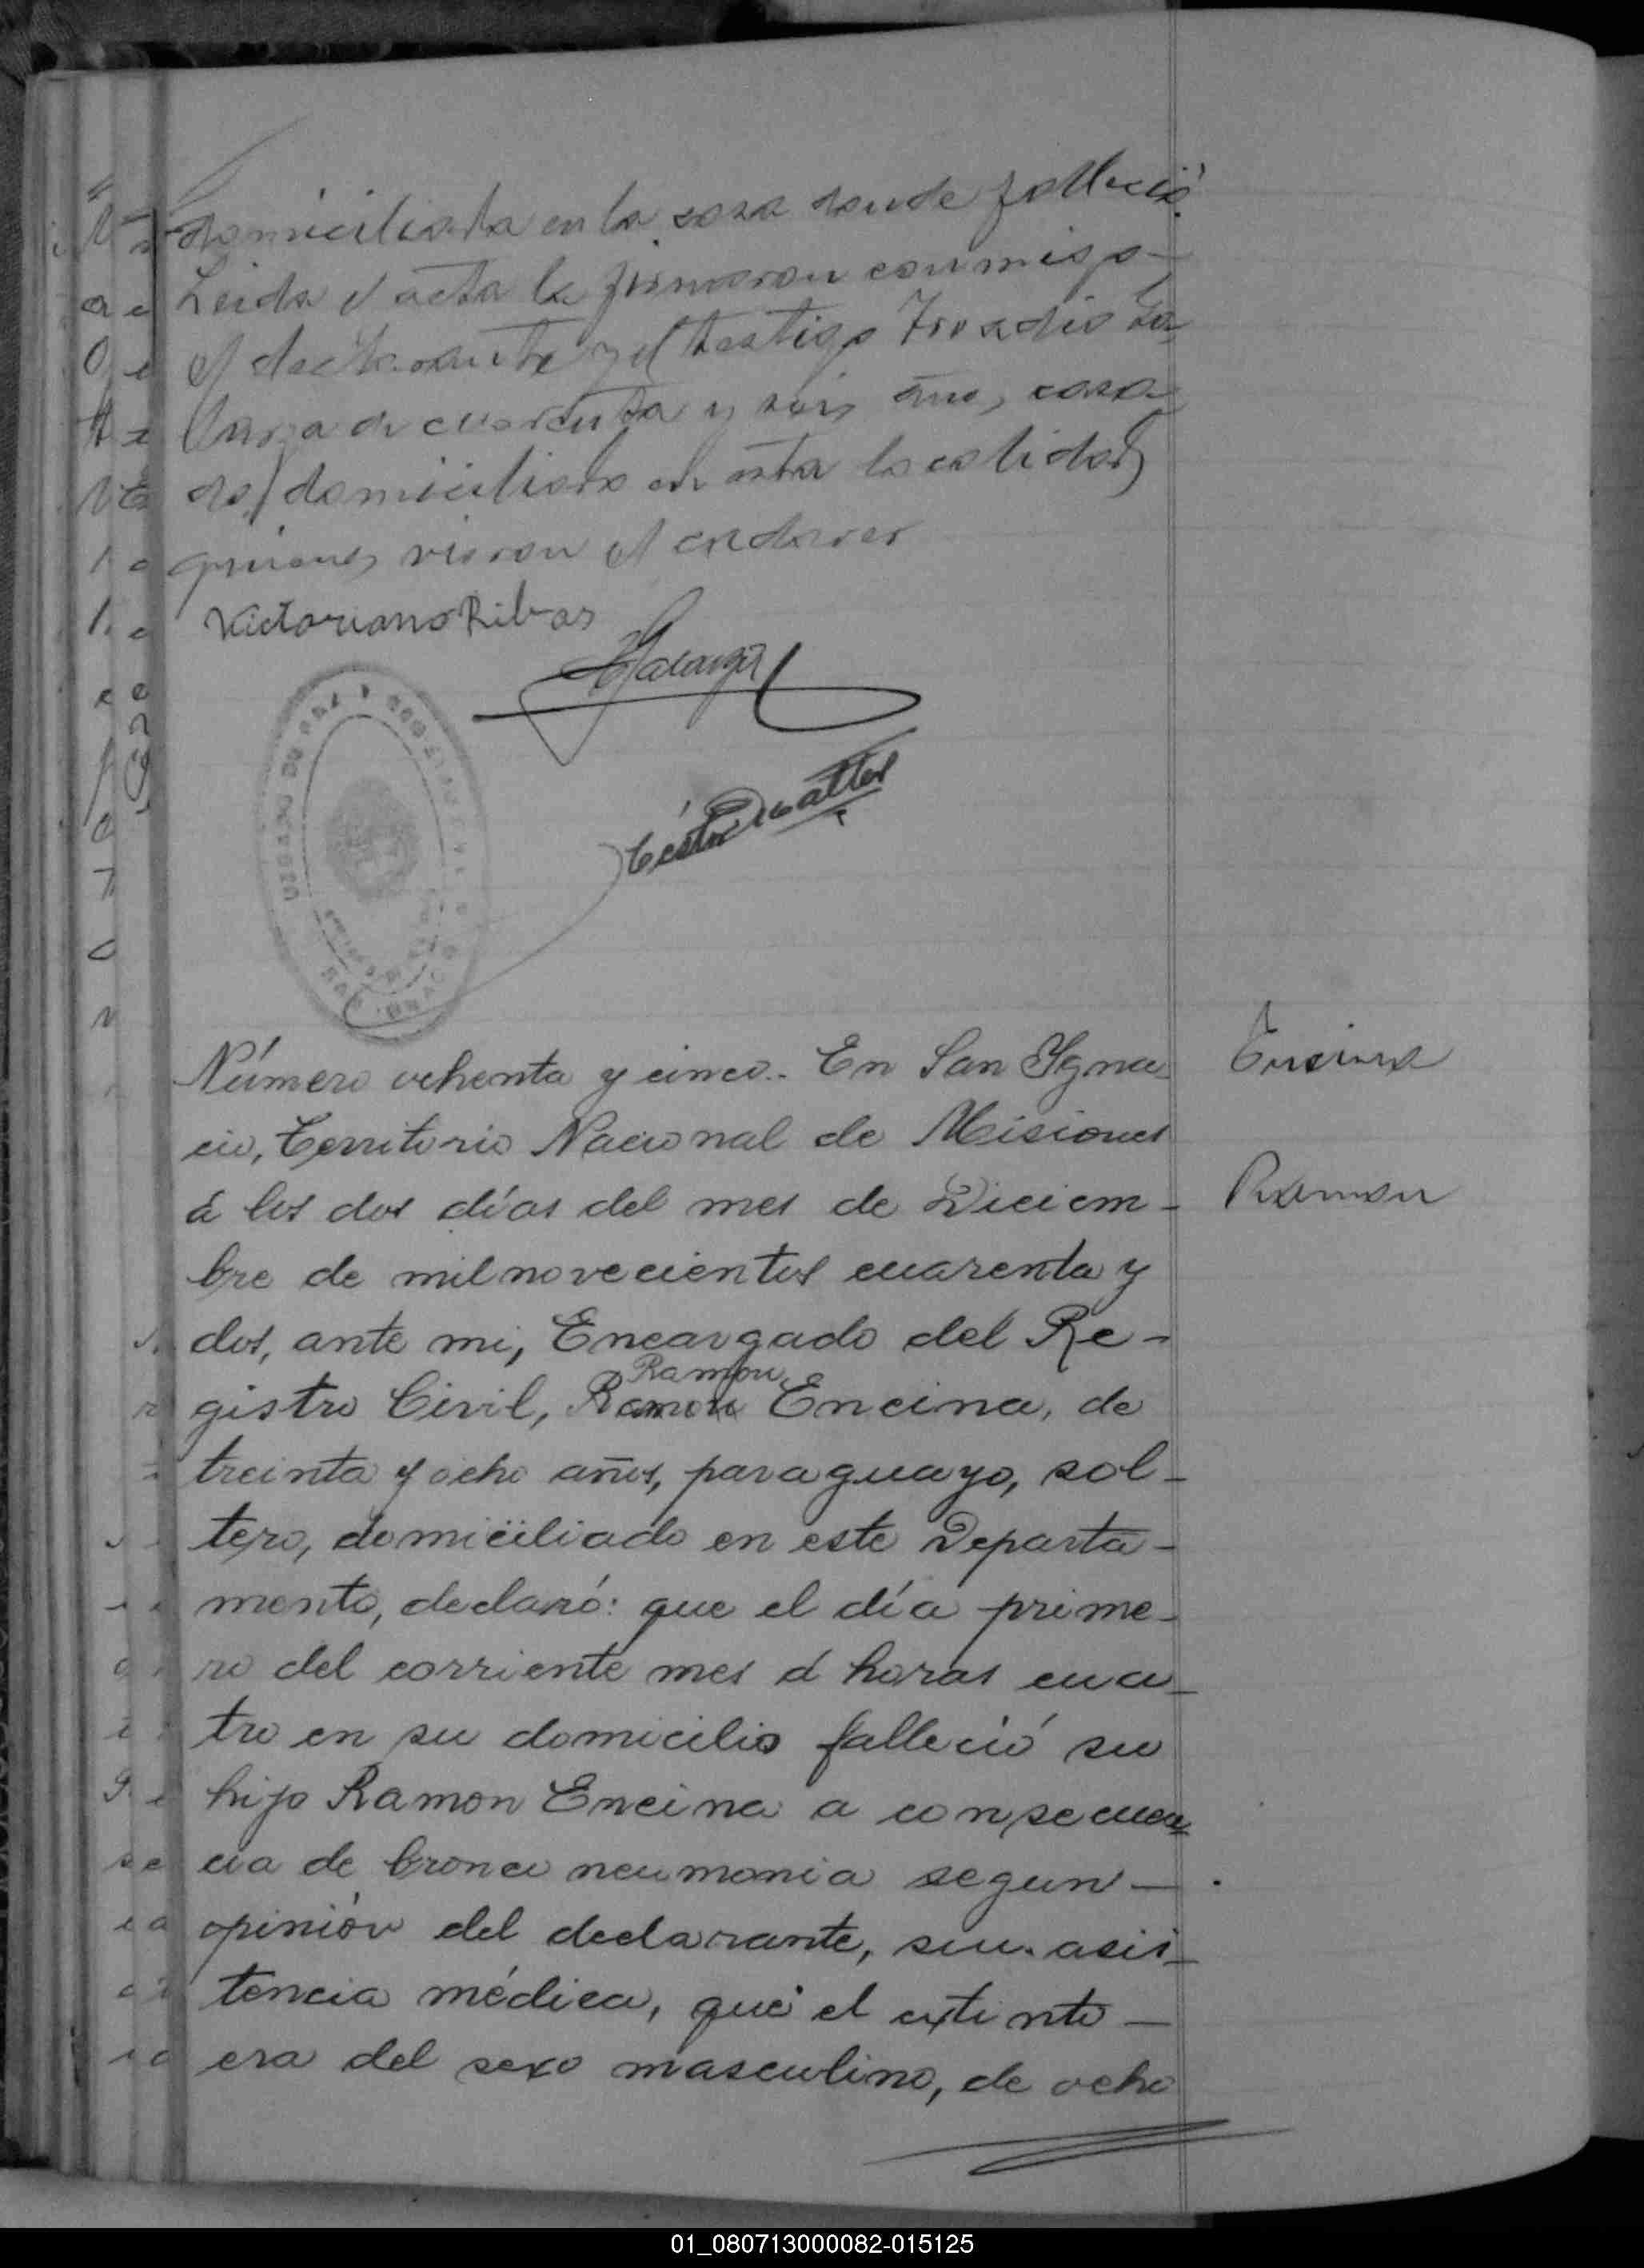 domiciliada en la casa donde falleció.
Leida el acta la firmaron conmigo
el declarante y el testigo
de cuarenta y seis años, casa
do, domiciliado en esta localidad
quienes vieron el cadaver
Victoriano Ribas
Número ochenta y cinco.. En San Ygna-
cio, Territorio Nacional de Misiones
á los dos días del mes de Diciem-
bre de mil novecientos cuarenta y
dos, ante mi, Encargado del Re-
Ramon
gistro Civil, Ramon Encina, de
treinta y ocho años, paraguayo, sol-
tero, domiciliado en este Departa-
mento, declaró: que el día prime-
ro del corriente mes á horas cua-
tro en su domicilio falleció su
hijo Ramon Encina a consecuen
cia de bronco neumonia segun —
opinión del declarante, sin asis-
tencia médica, que el extinto —
era del sexo masculino, de ocho
Encina
Ramon
01_080713000082-015125